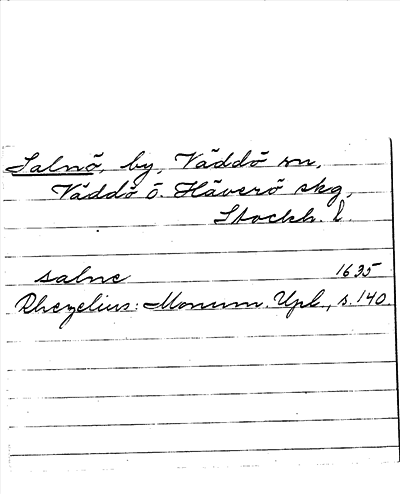 Salnö, by, Väddö sn,
Väddö o. Häverö skg,
Stockh. l.
salne 1635
Rhezelius: Monum. Upl., s. 140